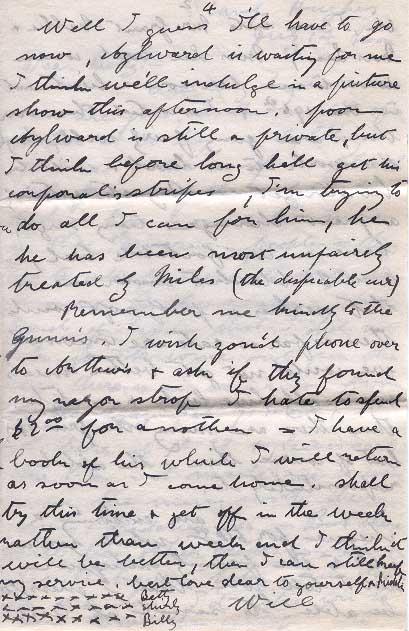 4
Well I guess I'll have to go
now, Aylward is waiting for me
I think we'll indulge in a picture
show this afternoon. poor
Aylward is still a private, but
I think before long he'll get his
corporal's stripes, I'm trying to
do all I can for him, he
he has been most unfairly
treated by Miles (the despicable cur)
Remember me kindly to the
Gunns. I wish you'd phone over
to Arthur's + ask if they found
my razor strop I hate to spend
$2.00 for another = I have a
book of his which I will return
as soon as I come home. shall
try this time + get off in the week
rather than week end I think it
will be better, then I can still keep
my service. best love dear to yourself +
xxxxxxxx Betty
xxxxxxxx
xxxxxxxx Billy
Will